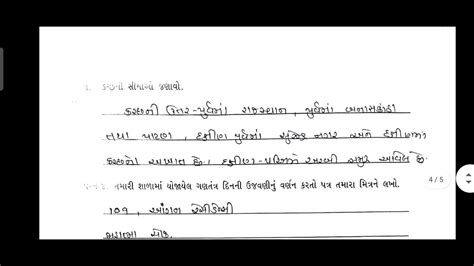 કચ્છની સીમાઓ જણાવો.
કચ્છની ઉત્તર-પુર્વમાં રાજસ્થાન, પુર્વમાં બનાસકાંઠા
તથા પાટણ, દક્ષીણ પુર્વમાં સુરેન્દ્રનગર અને દક્ષીણમાં
કચ્છનો અખાત છે. દક્ષીણ-પશ્ચિમે અરબી સમુદ્ર આવેલ છે.
4/5
તમારી શાળામાં યોજાયેલ ગણતંત્ર દિનની ઉજવણીનું વર્ણન કરતો પત્ર તમારા મિત્રને લખો.
૧૦૧, આંગન રેસીડેન્સી
ચોક.